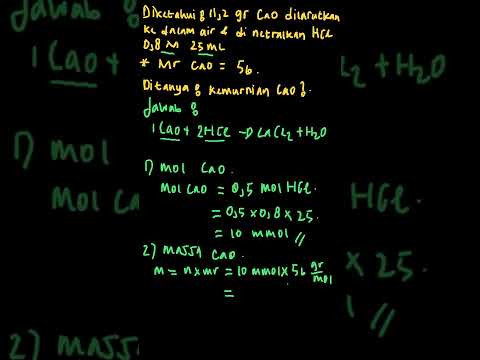 Diketahui : 11,2 gr CaO dilarutkan
ke dalam air & di netralkan HCl
0,8 M 25 mL
* Mr CaO = 56.
Ditanya : kemurnian CaO ?.
Jawab :
1 CaO + 2HCl → CaCl2 + H2O
1) mol CaO.
Mol CaO = 0,5 mol HCl.
= 0,5 x 0,8 x 25
= 10 mmol //
2) MASSA CaO.
m = n x mr = 10 mmol x 56 gr/mol
=